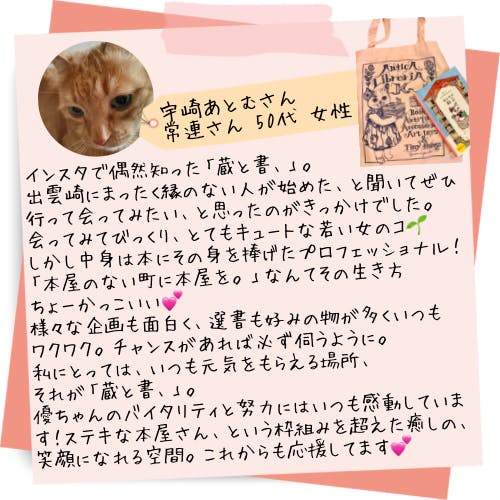 宇崎あとむさん
常連さん 50代 女性
AnticA
LibreriA
インスタで偶然知った「蔵と書、」。
出雲崎にまったく縁のない人が始めた、と聞いてぜひ
行って会ってみたい、と思ったのがきっかけでした。
会ってみてびっくり、とてもキュートな若い女のコ🌱
しかし中身は本にその身を捧げたプロフェッショナル!
「本屋のない町に本屋を。」なんてその生き方
ちょーかっこいい💕
様々な企画も面白く、選書も好みの物が多くいつも
ワクワク。チャンスがあれば必ず伺うように。
私にとっては、いつも元気をもらえる場所、
それが「蔵と書、」。
優ちゃんのバイタリティと努力にはいつも感動していま
す!ステキな本屋さん、という枠組みを超えた癒しの、
笑顔になれる空間。これからも応援してます💕